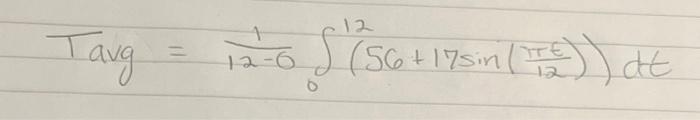 Tavg = 1/(12-0) ∫₀¹² (56+17sin(πt/12)) dt